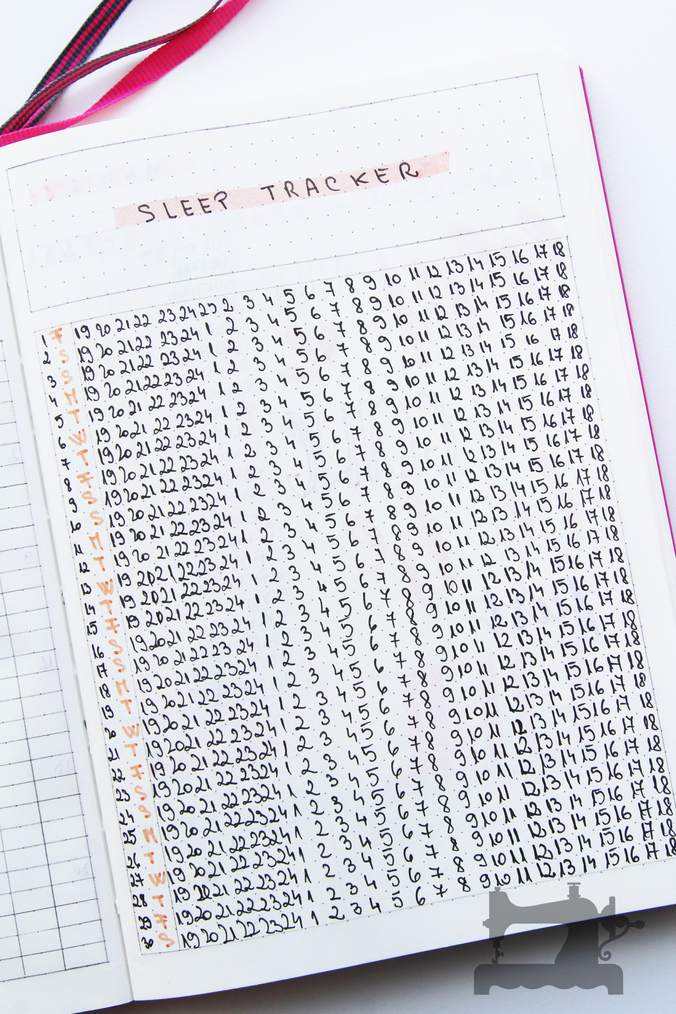 SLEEP TRACKER
1 F 19 20 21 22 23 24 23 2 3 4 5 6 7 8 9 10 11 12 13 14 15 16 17 18
2 S 19 20 21 22 23 24 1 2 3 4 5 6 7 8 9 10 11 12 13 14 15 16 17 18
3 S 19 20 21 22 23 24 1 2 3 4 5 6 7 8 9 10 11 12 13 14 15 16 17 18
4 M 19 20 21 22 23 24 1 2 3 4 5 6 7 8 9 10 11 12 13 14 15 16 17 18
5 T 19 20 21 22 23 24 1 2 3 4 5 6 7 8 9 10 11 12 13 14 15 16 17 18
6 W 19 20 21 22 23 24 1 2 3 4 5 6 7 8 9 10 11 12 13 14 15 16 17 18
7 T 19 20 21 22 23 24 1 2 3 4 5 6 7 8 9 10 11 12 13 14 15 16 17 18
8 F 19 20 21 22 23 24 1 2 3 4 5 6 7 8 9 10 11 12 13 14 15 16 17 18
9 S 19 20 21 22 23 24 1 2 3 4 5 6 7 8 9 10 11 12 13 14 15 16 17 18
10 S 19 20 21 22 23 24 1 2 3 4 5 6 7 8 9 10 11 12 13 14 15 16 17 18
11 M 19 20 21 22 23 24 1 2 3 4 5 6 7 8 9 10 11 12 13 14 15 16 17 18
12 T 19 20 21 22 23 24 1 2 3 4 5 6 7 8 9 10 11 12 13 14 15 16 17 18
13 W 19 20 21 22 23 24 1 2 3 4 5 6 7 8 9 10 11 12 13 14 15 16 17 18
14 T 19 20 21 22 23 24 1 2 3 4 5 6 7 8 9 10 11 12 13 14 15 16 17 18
15 F 19 20 21 22 23 24 1 2 3 4 5 6 7 8 9 10 11 12 13 14 15 16 17 18
16 S 19 20 21 22 23 24 1 2 3 4 5 6 7 8 9 10 11 12 13 14 15 16 17 18
17 S 19 20 21 22 23 24 1 2 3 4 5 6 7 8 9 10 11 12 13 14 15 16 17 18
18 M 19 20 21 22 23 24 1 2 3 4 5 6 7 8 9 10 11 12 13 14 15 16 17 18
19 T 19 20 21 22 23 24 1 2 3 4 5 6 7 8 9 10 11 12 13 14 15 16 17 18
20 W 19 20 21 22 23 24 1 2 3 4 5 6 7 8 9 10 11 12 13 14 15 16 17 18
21 T 19 20 21 22 23 24 1 2 3 4 5 6 7 8 9 10 11 12 13 14 15 16 17 18
22 F 19 20 21 22 23 24 1 2 3 4 5 6 7 8 9 10 11 12 13 14 15 16 17 18
23 S 19 20 21 22 23 24 1 2 3 4 5 6 7 8 9 10 11 12 13 14 15 16 17 18
24 S 19 20 21 22 23 24 1 2 3 4 5 6 7 8 9 10 11 12 13 14 15 16 17 18
25 M 19 20 21 22 23 24 1 2 3 4 5 6 7 8 9 10 11 12 13 14 15 16 17 18
26 T 19 20 21 22 23 24 1 2 3 4 5 6 7 8 9 10 11 12 13 14 15 16 17 18
27 W 19 20 21 22 23 24 1 2 3 4 5 6 7 8 9 10 11 12 13 14 15 16 17 18
28 T 19 20 21 22 23 24 1 2 3 4 5 6 7 8 9 10 11 12 13 14 15 16 17 18
29 F 19 20 21 22 23 24 1 2 3 4 5 6 7 8 9 10 11 12 13 14 15 16 17 18
30 S 19 20 21 22 23 24 1 2 3 4 5 6 7 8 9 10 11 12 13 14 15 16 17 18